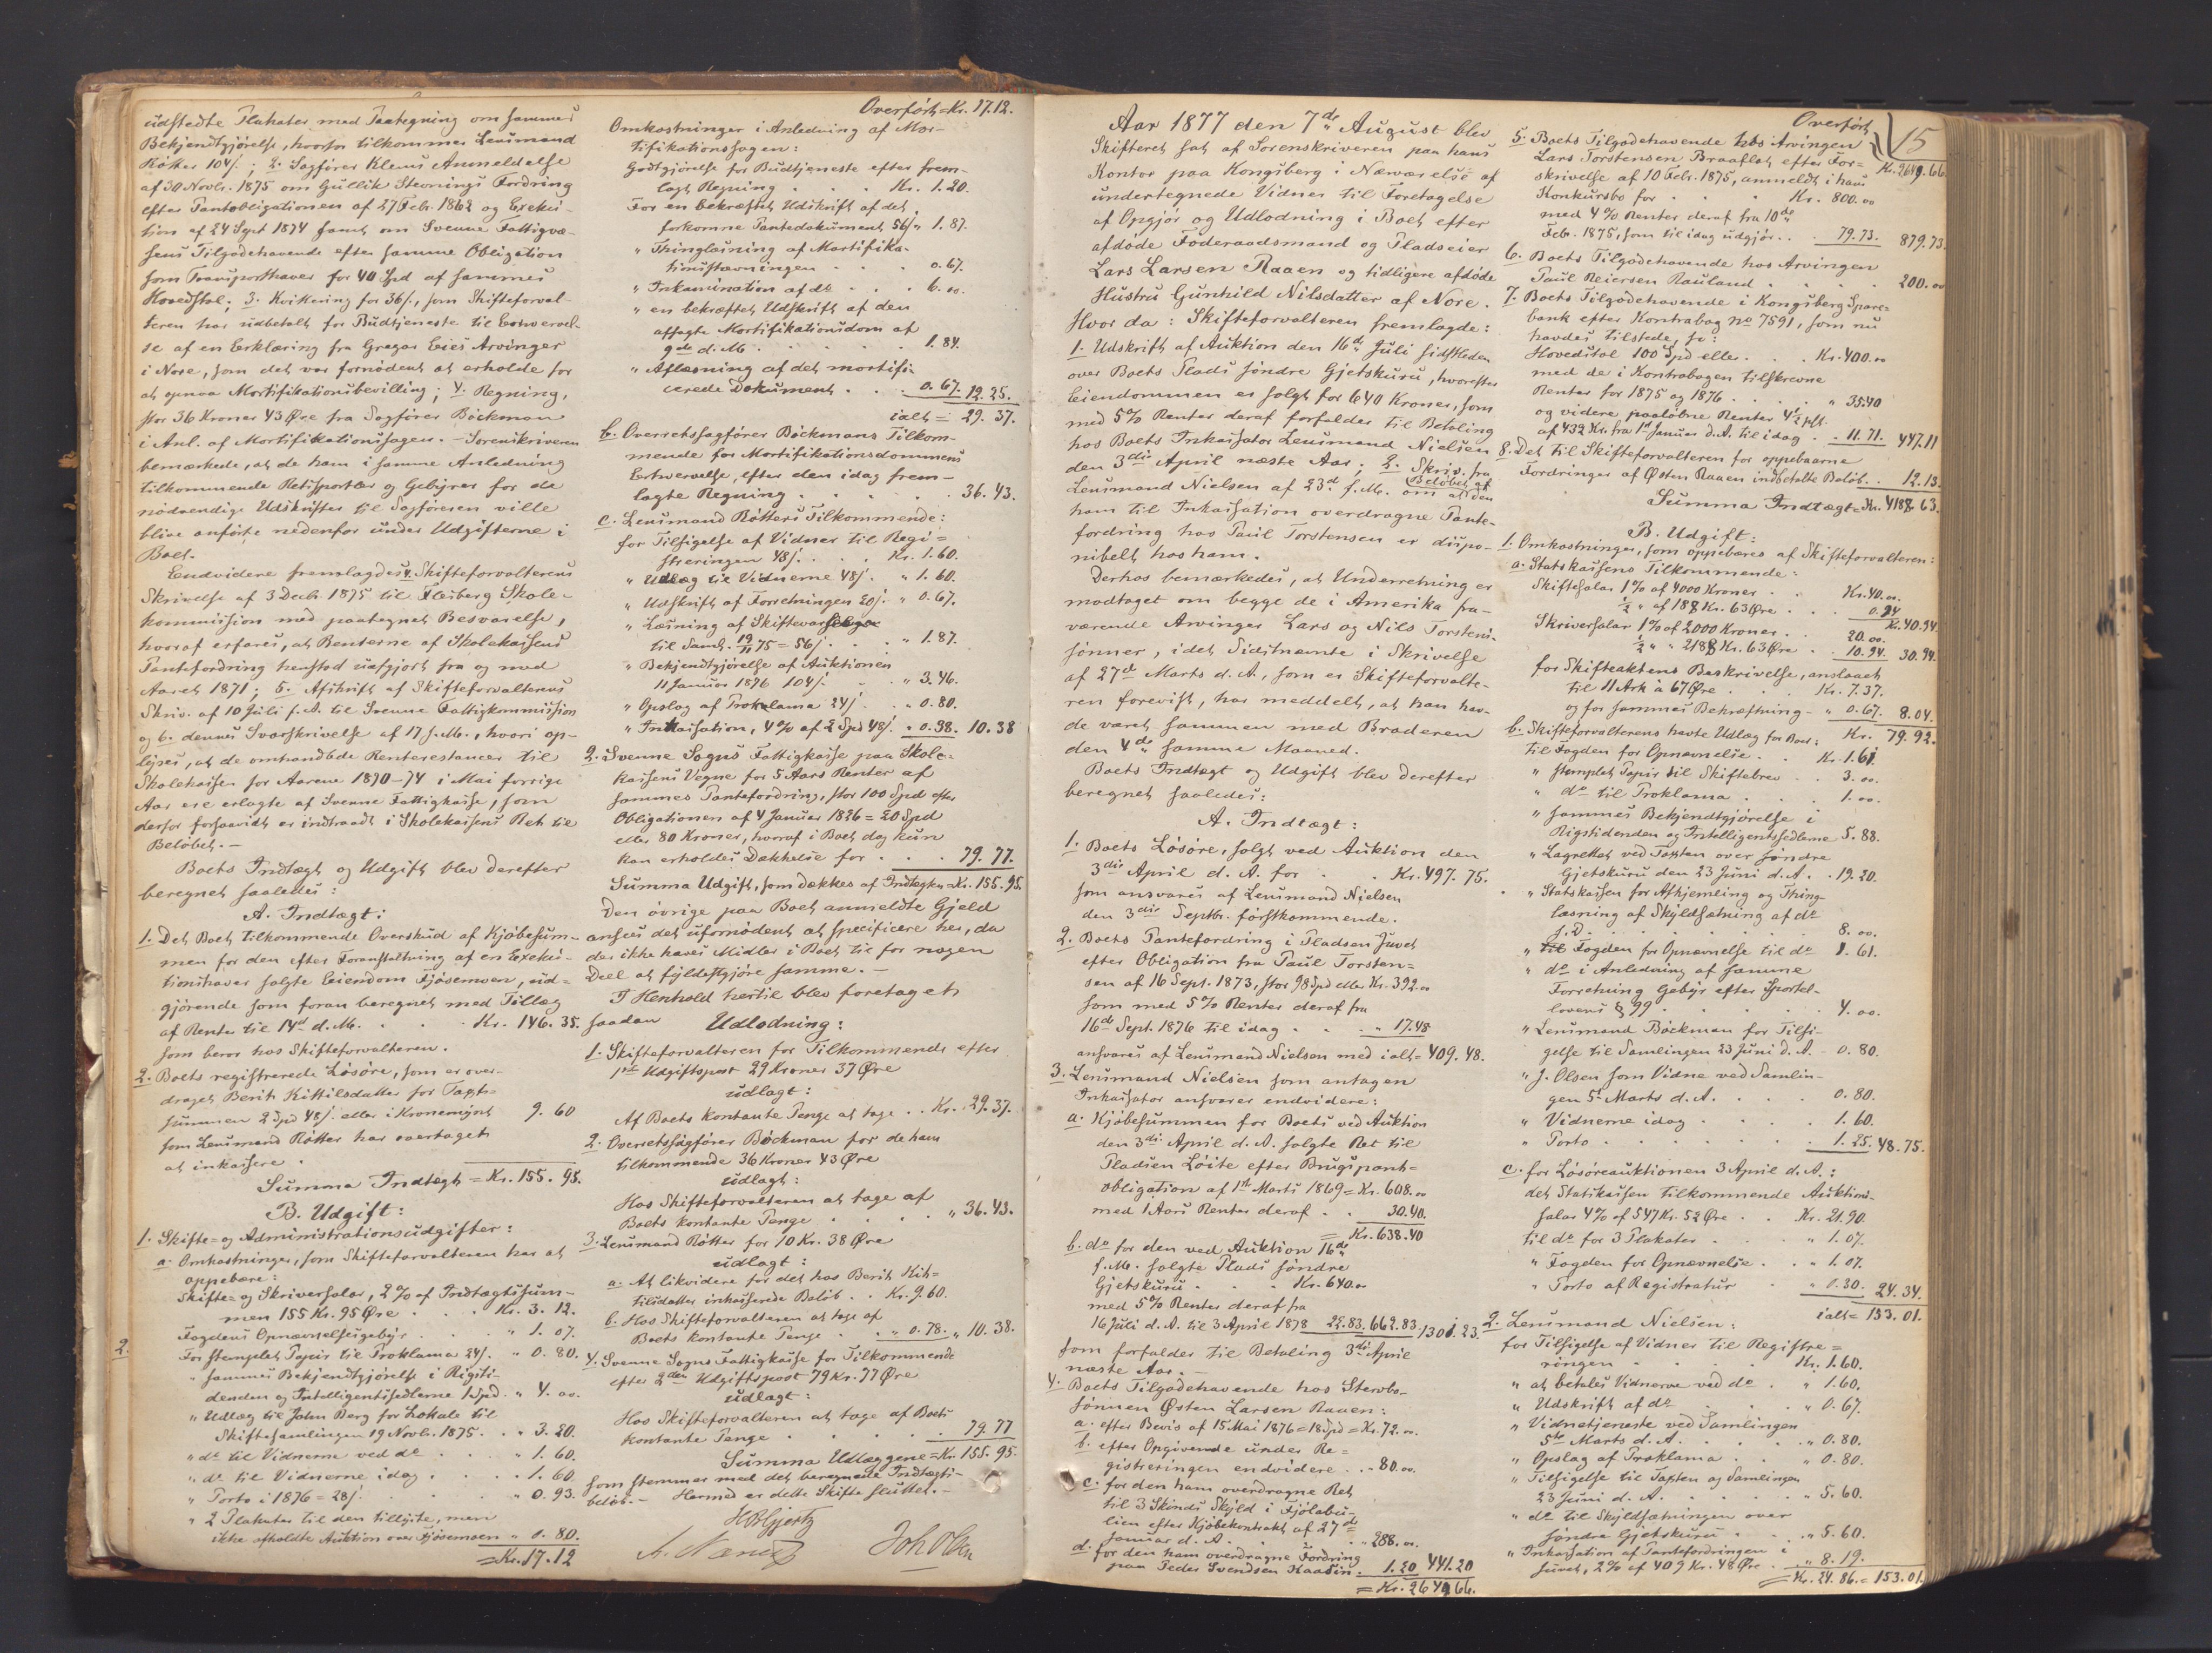 udstedte Plakater med Paategning om sammes
Bekjendtgjörelse, hvorfor tilkommer Lensmand
Røtter 104/.; 2. Sagförer Klems Anmeldelse
af 30 Novbr. 1875 om Gullik Stevnings Fordring
efter Pantobligationen af 27 Feb. 1862 og Exeku-
tion af 24 Sept 1874 samt om Svenne Fattigvæ-
sens Tilgodehavende efter samme Obligation
som Transporthaver for 40 Spd af sammes
Hovedstol; 3. Kvittering for 36/., som Skifteforval-
teren har udbetalt for Budtjeneste til Erhvervel-
se af en Erklæring fra Gregar Eies Arvinger
i Nore, som det var fornödent at erholde for
at opnaa Mortifikationsbevilling; 4. Regning,
stor 36 Kroner 43 Øre fra Sagförer Böckman
i Anl. af Mortifikationssagen. - Sorenskriveren
bemærkede, at de ham i samme Anledning
tilkommende Retssportler og Gebyrer for de
nödvendige Udskrifter til Sagföreren ville
blive anförte nedenfor under Udgifterne i
Boet.
Endvidere fremlagdes 4. Skifteforvalterens
Skrivelse af 3 Decb 1875 til Flesberg Skole-
kommission med paategnet Besvarelse,
hvoraf erfares, at Renterne af Skolekassens
Pantefordring henstod uafgjort fra og med
Aaret 1871; 5. Afskrift af Skifteforvalterens
Skriv. af 10 Juli f. A. til Svenne Fattigkommission
og 6. dennes Svarskrivelse af 17 s. M., hvori op-
lyses, at de omhandlede Renterestancer til
Skolekassen for Aarene 1870-74 i Mai forrige
Aar ere erlagte af Svenne Fattigkasse, som
derfor forsaavidt er indtraadt i Skolekassens Ret til
Belöbet. -
Boets Indtægt og Udgift blev derefter
beregnet saaledes:
A. Indtægt:
1. Det Boet tilkommende Overskud af Kjöbesum-
men for den efter Foranstaltning af en Exeku-
tionshaver solgte Eiendom Fjösemoen, ud-
gjörende som foran beregnet med Tillæg
af Renter til 14d d. M. . . . Kr. 146. 35.
som beror hos Skifteforvalteren.
2. Boets registrerede Lösöre, som er over-
draget Berit Kittilsdatter for Taxt-
summen 2 Spd 48/. eller i Kronemynt 9. 60
som Lensmand Røtter har overtaget
at inkassere.
Summa Indtægt = Kr. 155. 95.
B. Udgift:
1. Skifte- og Administrationsudgifter:
a. Omkostninger, som Skifteforvalteren har at
oppebære:
Skifte- og Skriversalær, 2% af Indtægtssum-
men 155 Kr. 95 Øre . . . Kr. 3. 12.
Fogdens Opnævnelsesgebyr . . " 1. 07.
For stemplet Papir til Proklama 24/. " 0. 80.
" sammes Bekjendtgjörelse i Rigsti-
denden og Intelligentssedlerne 1 Spd. " 4. 00
" Udlæg til John Berg for Lokale til
Skiftesamlingen 19 Novbr. 1875. . " 3. 20.
" do til Vidnerne ved do . . " 1. 60.
" do til Vidnerne idag . . . " 1. 60.
" Porto i 1876 = 28/. . . " 0. 93.
" 2 Plakater til den tillyste, men
ikke afholdte Auktion over Fjösemoen " 0. 80.
= Kr. 17. 12
2.
Overfört = Kr. 17. 12.
Omkostninger i Anledning af Mor-
tifikationssagen:
Godtgjörelse for Budtjeneste efter frem-
lagt Regning . . . Kr. 1. 20.
For en bekræftet Udskrift af det
forkomne Pantedokument 56/. " 1. 87.
" Thinglæsning af Mortifika-
tionsstævningen . . . 0. 67.
" Inkamination af do . . . 6. 00
" en bekræftet Udskrift af den
afsagte Mortifikationsdom af
9de d. M. . . . . 1. 84.
" Aflæsning af det mortifi-
cerede Dokument . . 0. 67. 12. 25.
ialt = 29. 37.
b. Overretssagförer Böckmans Tilkom-
mende for Mortifikationsdommens
Erhvervelse, efter den idag frem-
lagte Regning . . . . 36. 43.
c. Lensmand Røtters Tilkommende:
for Tilsigelse af Vidner til Regi-
streringen 48/. . . Kr. 1. 60.
" Udlæg til Vidnerne 48/. " 1. 60.
" Udskrift af Forretningen 20/. " 0. 67.
" Læsning af Skiftevarsel
til Saml. 19/11 75 = 56/. . . " 1. 87.
" Bekjendtgjörelse af Auktionen
11 Januar 1876 104/. . . " 3. 46.
" Opslag af Proklama 24/. . " 0. 80.
" Inkassation, 4% af 2 Spd 48/. " 0. 38. 10. 38
2. Svenne Sogns Fattigkasse paa Skole-
kassens Vegne for 5 Aars Renter af
sammes Pantefordring, stor 100 Spd efter
Obligationen af 4 Januar 1826 = 20 Spd
eller 80 Kroner, hvoraf i Boet dog kun
kan erholdes Dækkelse for . . . 79. 77.
Summa Udgift, som dækkes af Indtægten = Kr. 155. 95.
Den övrige paa Boet anmeldte Gjeld
ansees det ufornödent at specificere her, da
der ikke haves Midler i Boet til for nogen
Deel at fyldestgjöre samme. -
I Henhold hertil blev foretaget
saadan Udlodning:
1. Skifteforvalteren for Tilkommende efter
1ste Udgiftspost 29 Kroner 37 Øre
udlagt:
Af Boets kontante Penge at tage . . Kr. 29. 37.
2. Overretssagförer Böckman for de ham
tilkommende 36 Kroner 43 Øre
udlagt:
Hos Skifteforvalteren at tage af
Boets kontante Penge . . . . " 36. 43.
3. Lensmand Røtter for 10 Kr. 38 Øre
udlagt:
a. At likvidere for det hos Berit Kit-
tilsdatter inkasserede Belöb . . Kr. 9. 60.
b. Hos Skifteforvalteren at tage af
Boets kontante Penge . . " 0. 78. " 10. 38.
4. Svenne Sogns Fattigkasse for Tilkommende
efter 2den Udgiftspost 79 Kr. 77 Øre
udlagt:
Hos Skifteforvalteren at tage af Boets
kontante Penge . . . . . 79. 77
Summa Udlæggene = Kr. 155. 95.
som stemmer med det beregnede Indtægts-
belöb. - Hermed er dette Skifte sluttet. -
Joh Olsen
Aar 1877 den 7de August blev
Skifteret sat af Sorenskriveren paa hans
Kontor paa Kongsberg i Nærværelse af
undertegnede Vidner til Foretagelse
af Opgjör og Udlodning i Boet efter
afdöde Föderaadsmand og Pladseier
Lars Larsen Raaen og tidligere afdöde
Hustru Gunhild Nilsdatter af Nore.
Hvor da: Skifteforvalteren fremlagde:
1. Udskrift af Auktion den 16de Juli sidstleden
over Boets Plads söndre Gjetskuru, hvorefter
Eiendommen er solgt for 640 Kroner, som
med 5% Renter deraf forfalder til Betaling
hos Boets Inkassator Lensmand Nielsen
den 3die April næste Aar; 2. Skriv. fra
Lensmand Nielsen af 23d f. M. om at Belöbet af den
ham til Inkassation overdragne Pante-
fordring hos Paul Torstensen er dispo-
nibelt hos ham.
Derhos bemærkedes, at Underretning er
modtaget om begge de i Amerika fra-
værende Arvinger Lars og Nils Torstens-
sönner, idet Sidstnævnte i Skrivelse
af 27de Marts d. A., som er Skifteforvalte-
ren forevist, har meddelt, at han hav-
de været sammen med Broderen
den 4de samme Maaned.
Boets Indtægt og Udgift blev derefter
beregnet saaledes:
A. Indtægt:
1. Boets Lösöre, solgt ved Auktion den
3die April d. A. for . . Kr. 497. 75.
som ansvares af Lensmand Nielsen
den 3die Septbr. förstkommende.
2. Boets Pantefordring i Pladsen Juvet
efter Obligation fra Paul Torsten-
sen af 16 Sept. 1873, stor 98 Spd eller Kr. 392.00
som med 5% Renter deraf fra
16de Sept. 1876 til idag . . . " 17.48
ansvares af Lensmand Nielsen med ialt = 409. 48.
3. Lensmand Nielsen som antagen
Inkassator ansvarer endvidere:
a. Kjöbesummen for Boets ved Auktion
den 3die April d. A. solgte Ret til
Pladsen Löite efter Brugspant-
obligation af 1ste Marts 1869 = Kr. 608.00
med 1 Aars Renter deraf . . 30.40.
= Kr. 638.40
b. do for den ved Auktion 16de
f. M. solgte Plads söndre
Gjetskuru . . . Kr. 640.00
med 5% Renter deraf fra
16 Juli d. A. til 3 April 1878 22.83. 662.83. 1301. 23.
som forfalder til Betaling 3die April
næste Aar. -
4. Boets Tilgodehavende hos Stervbo-
sönnen Østen Larsen Raaen:
a. efter Bevis af 15 Mai 1876 = 18 Spd = Kr. 72. 00.
b. efter Opgivende under Re-
gistreringen endvidere . . " 80. 00.
c. for den ham overdragne Ret
til 3 Skinds Skyld i Fjölabu-
lien efter Kjöbekontrakt af 27de
Januar d. A. . . . " 288. 00.
d. for den ham overdragne Fordring
paa Peder Svendsen Kaasin . 1.20 441.20
= Kr. 2649.66.
15
Overfört
Kr. 2649. 66
5. Boets Tilgodehavende hos Arvingen
Lars Torstensen Braaflat efter For-
skrivelse af 10 Feb. 1875, anmeldt i hans
Konkursbo for . . . Kr. 800. 00
med 4% Renter deraf fra 10de
Feb. 1875, som til idag udgjör . . 79. 73. 879.73.
6. Boets Tilgodehavende hos Arvingen
Paul Reiersen Rauland . . . . 200. 00
7. Boets Tilgodehavende i Kongsberg Spare-
bank efter Kontrabog no 7591, som nu
havdes tilstede, sc:
Hovedstol 100 Spd eller . . . Kr. 400.00
med de i Kontrabogen tilskrevne
Renter for 1875 og 1876 . . . " 35.40
og videre paalöbne Renter 4 1/2 pCt.
af 432 Kr. fra 1st Januar d. A. til idag . . 11. 71. 447.11
8. Det til Skifteforvalteren for oppebaarne
Fordringer af Østen Raaen indbetalte Belöb. . 12.13.
Summa Indtægt = Kr. 4188. 63.
B. Udgift:
1. Omkostninger, som oppebæres af Skifteforvalteren:
a. Statskassens Tilkommende:
Skiftesalær 1% af 4000 Kroner . . Kr. 40. 00.
1/2 " af 188 Kr. 63 Øre . . . 0. 94
K. 40.94.
Skriversalær 1% af 2000 Kroner . . 20. 00.
1/2 " " 2188 Kr. 63 Øre . 10. 94. 30. 94.
for Skifteaktens Beskrivelse, anslaaet
til 11 Ark à 67 Øre . . . Kr. 7. 37.
og for sammes Bekræftning - " 0. 67. 8. 04.
Kr. 79. 92.
b. Skifteforvalterens havte Udlæg for Boet:
til Fogden for Opnævnelse . . Kr. 1. 61.
" stemplet Papir til Skiftebrev . . 3. 00.
" do til Proklama . . . . 1. 00.
" sammes Bekjendtgjörelse i
Rigstidenden og Intelligentssedlerne 5. 88.
" Lagrettet ved Taxten over söndre
Gjetskuru den 23 Juni d. A. . 19. 20.
" Statskassen for Afhjemling og Thing-
læsning af Skyldsætning af do
s. D. . . . . . . 8. 00.
" Fogden for Opnævnelse til do 1. 61.
" do i Anledning af samme
Forretning Gebyr efter Sportel-
lovens § 99 . . . . . 4. 00.
" Lensmand Böckman for Tilsi-
gelse til Samlingen 23 Juni d. A. - 0. 80.
" J. Olsen som Vidne ved Samlin-
gen 5te Marts d. A. . . . 0. 80.
" Vidnerne idag . . . . 1. 60.
" Porto . . . . . . 1. 25. 48. 75.
c. for Lösöreauktionen 3 April d. A.:
det Statskassen tilkommende Auktions-
salær 4% af 547 Kr. 52 Øre . . Kr. 21. 90.
til do for 3 Plakater . . . " 1. 07.
" Fogden for Opnævnelse . . " 1. 07.
" Porto af Registratur . . " 0.30. 24. 34.
ialt = 153. 01.
2. Lensmand Nielsen:
for Tilsigelse af Vidner til Registre-
ringen . . . . Kr. 1. 60.
" at betales Vidnerne ved do . " 1. 60.
" Udskrift af do . . . " 0. 67.
" Vidnetjeneste ved Samlingen
5te Marts d. A. . . . . " 0. 80.
" Opslag af Proklama . . " 0. 80.
" Tilsigelse til Taxten og Samlingen
23 Juni d. A. . . . . " 5. 60.
" do til Skyldsætningen over
söndre Gjetskuru . . . " 5. 60.
" Inkassation af Pantefordringen i
Juvet, 2% af 409 Kr. 48 Øre . " 8. 19.
= Kr. 24. 86. = 153. 01.